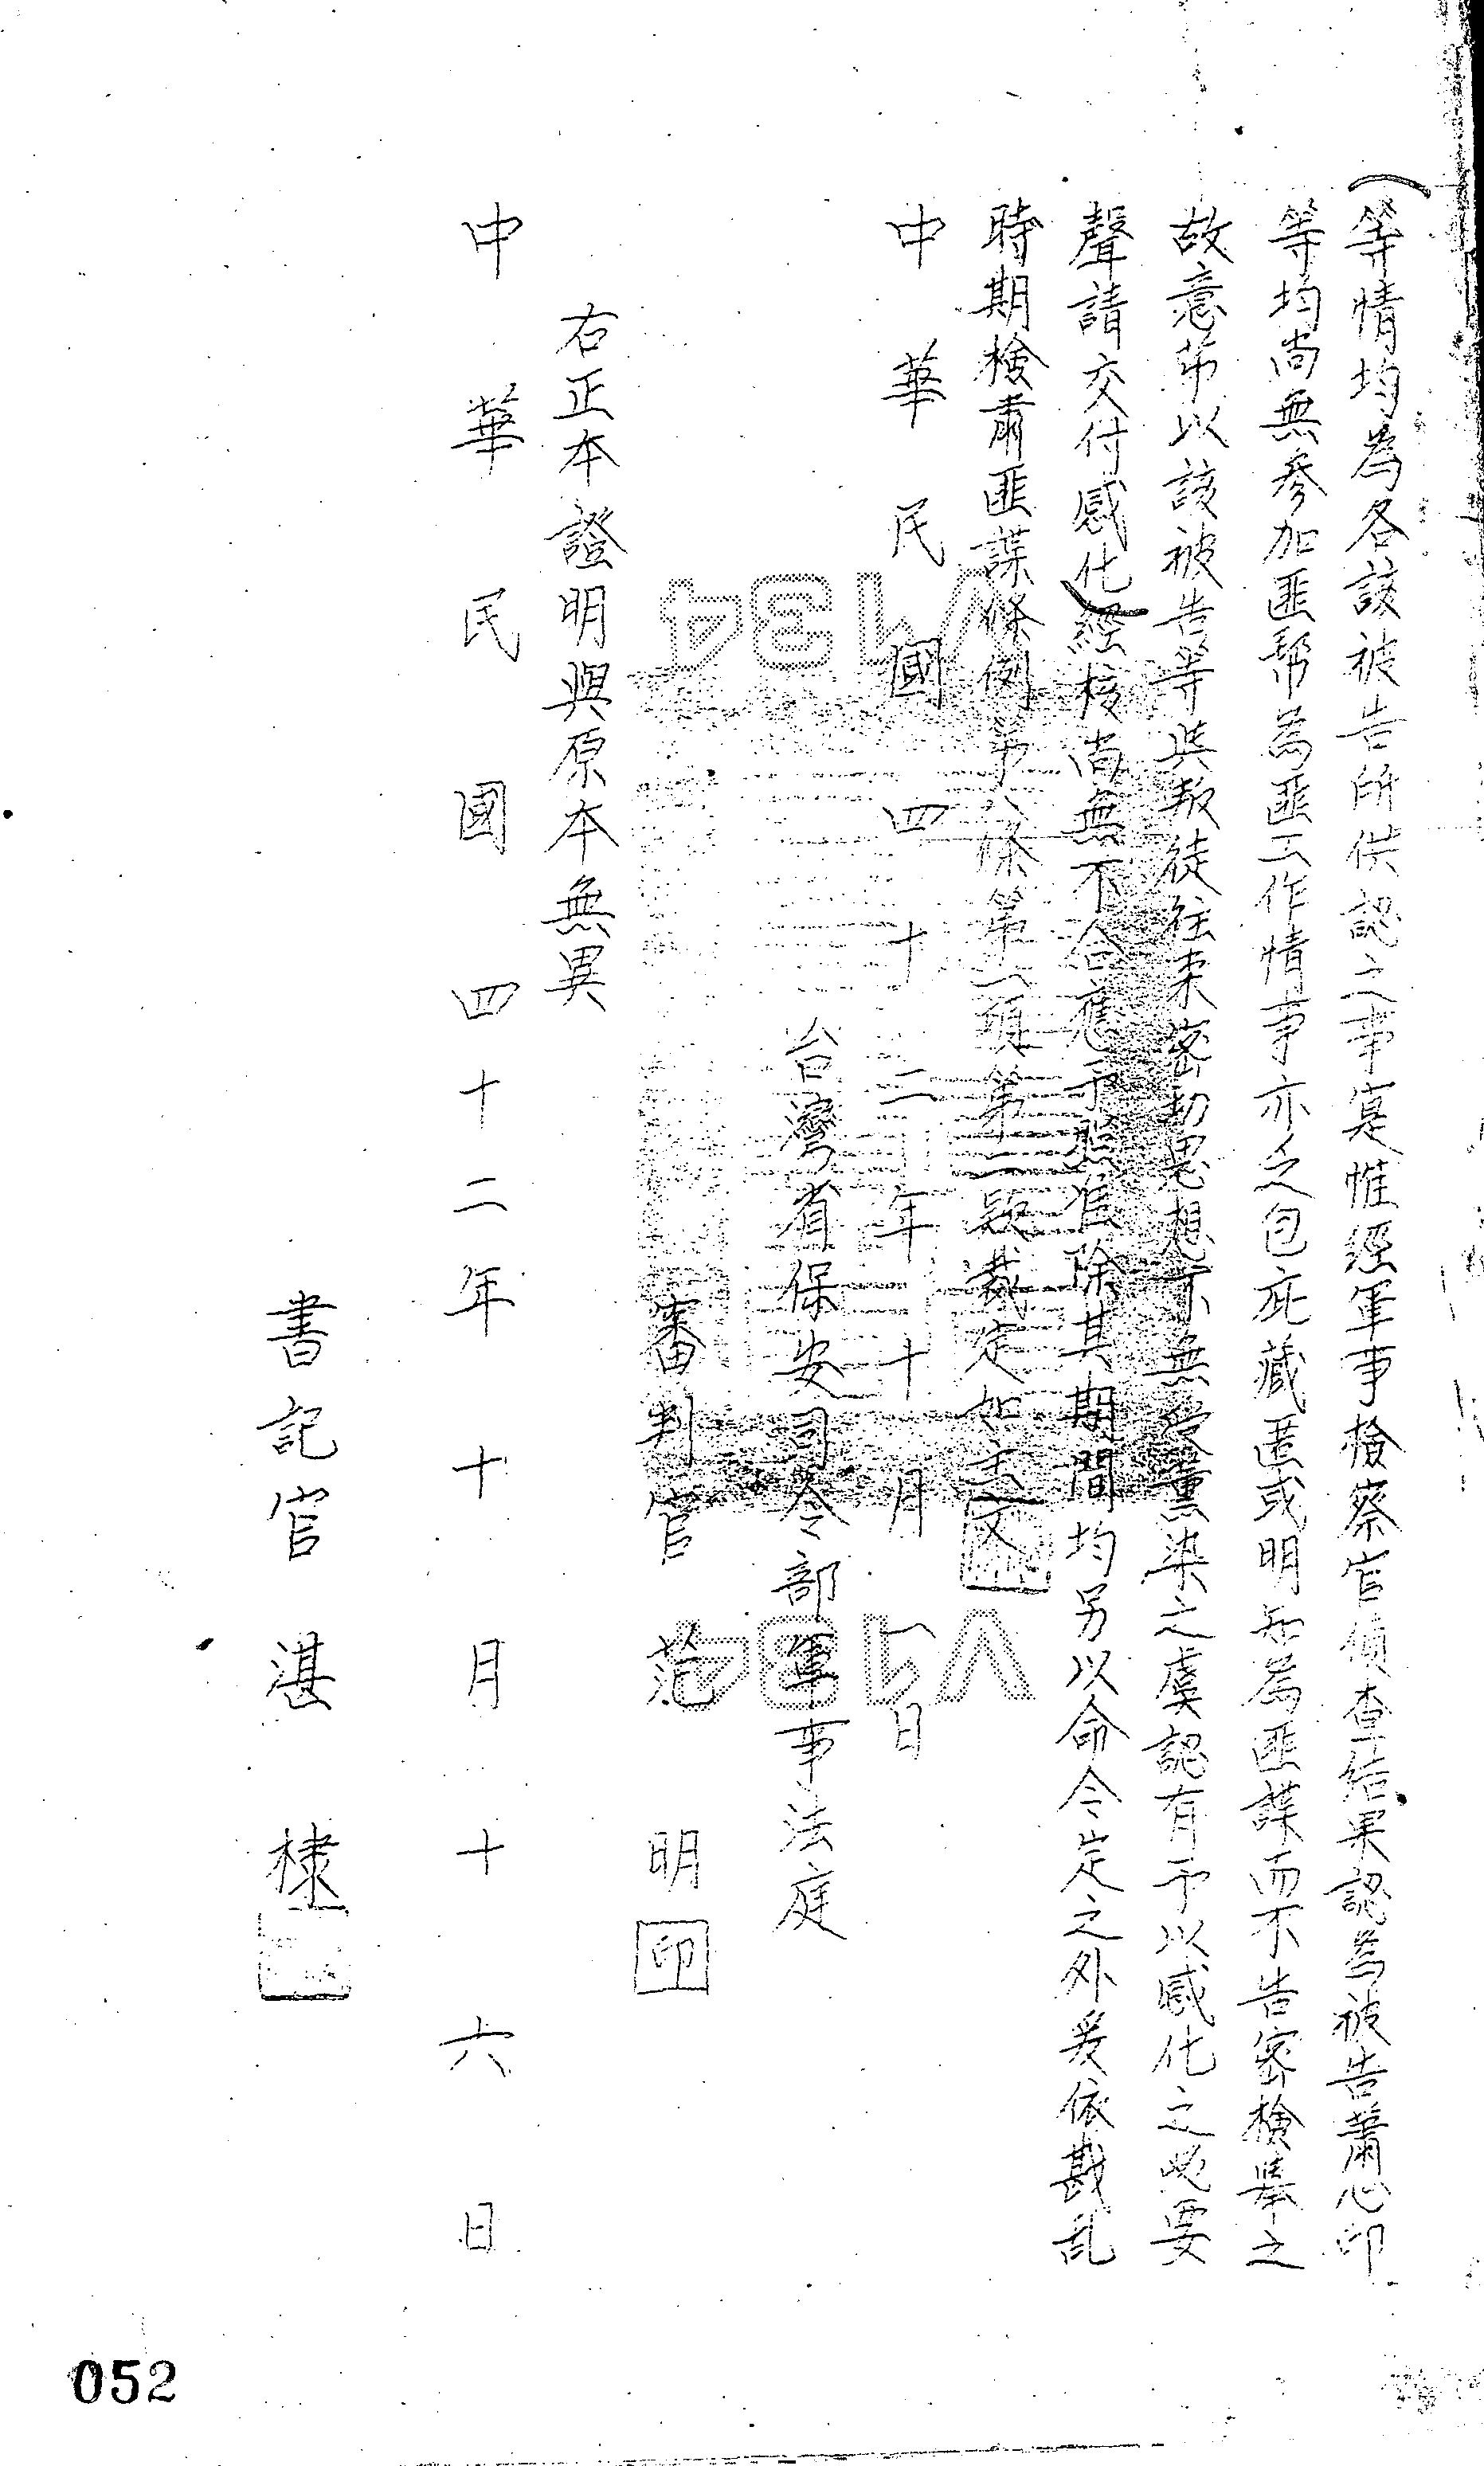 等情均為各該被告所供認之事寔惟經軍事檢察官偵查結果認為被告蕭心印
等均尚無參加匪幫為匪工作情事亦乏包庇藏匿或明知為匪諜而不告密檢舉之
故意第以該被告等與叛徒往來密切思想不無受薰染之虞認有予以感化之必要
聲請交付感化經核尚無不合應予照准除其期間均另以命令定之外爰依戡乱
時期檢肅匪諜條例第八條第一項第二款裁定如主文
中華民國四十二年十月一日
台灣省保安司令部軍事法庭
審判官 范明 印
右正本證明與原本無異
中華民國四十二年十月十六日
書記官 湛棣
V134
V134
052